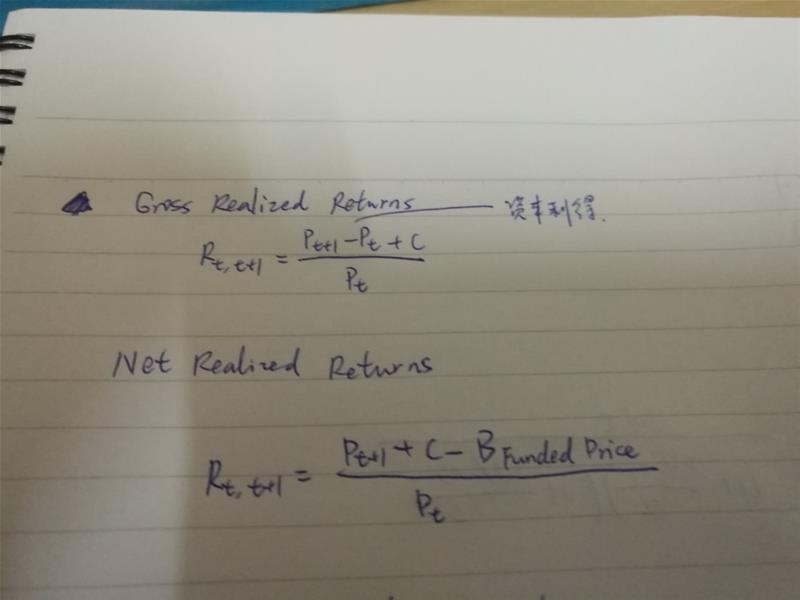 Gross Realized Returns —— 资本利得.
R_{t,t+1} = \frac{P_{t+1} - P_t + C}{P_t}
Net Realized Returns
R_{t,t+1} = \frac{P_{t+1} + C - B_{Funded Price}}{P_t}